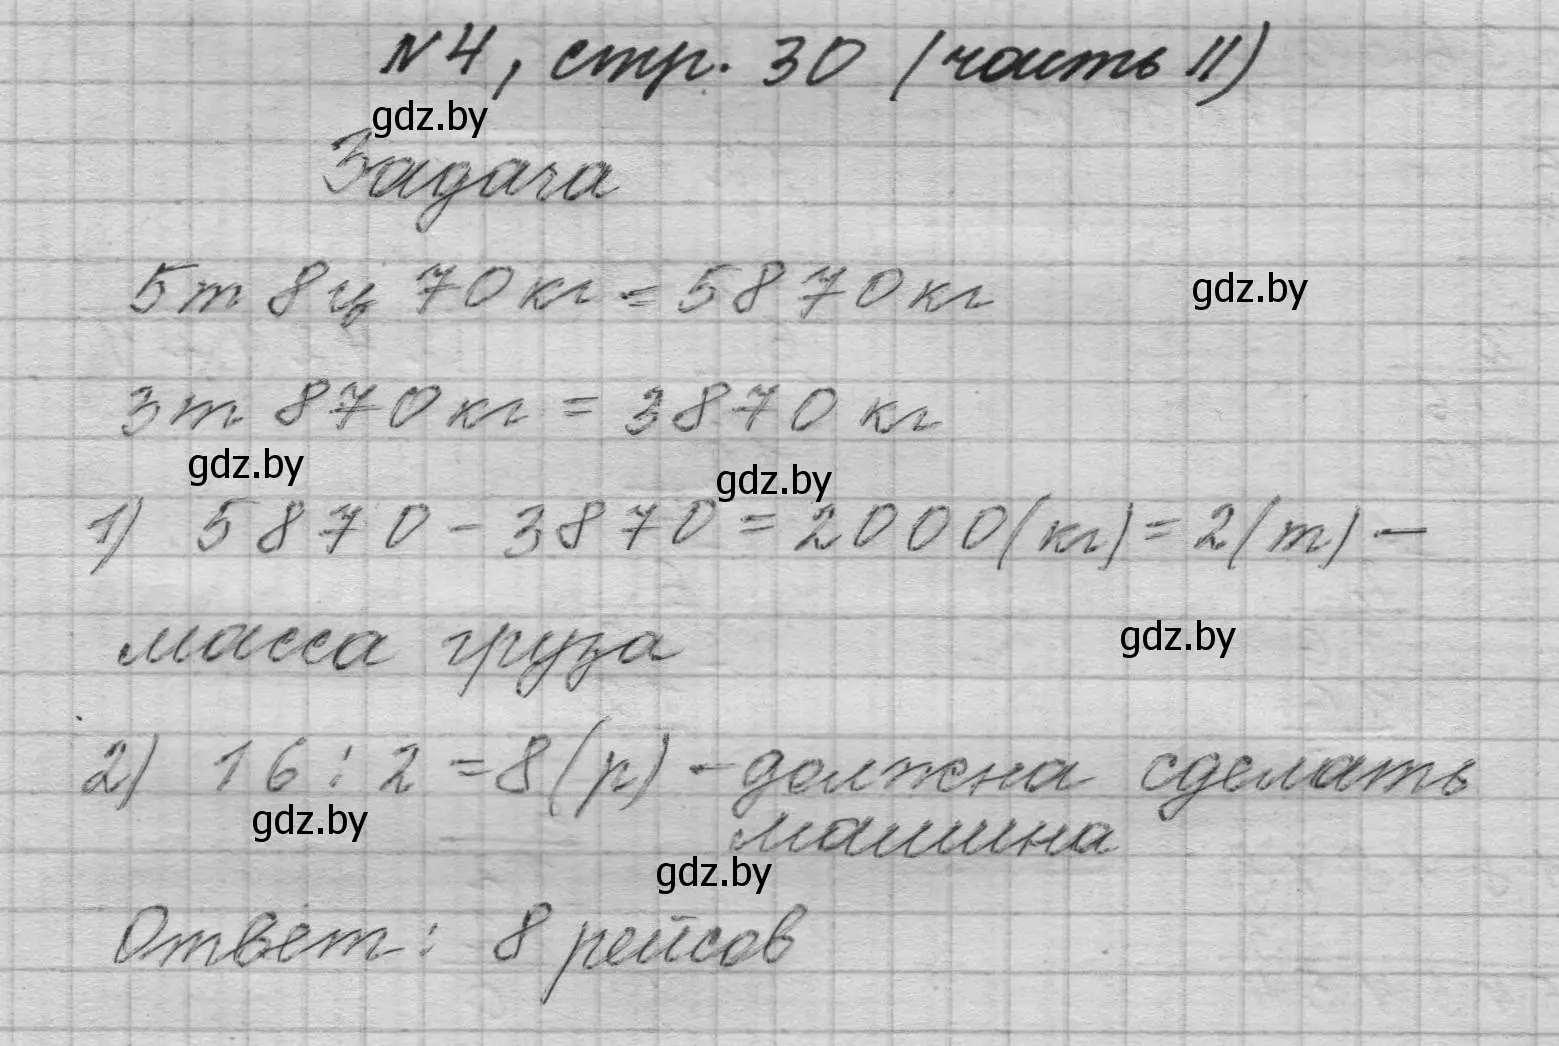 N4, стр. 30 (часть II)
gdz.by
Задача
5т 8ц 70кг = 5870кг
gdz.by
3т 870кг = 3870 кг
gdz.by
gdz.by
1) 5870 - 3870 = 2000(кг) = 2(т) -
масса груза
gdz.by
2) 16 : 2 = 8(р) - должна сделать
машина
gdz.by
gdz.by
Ответ: 8 рейсов